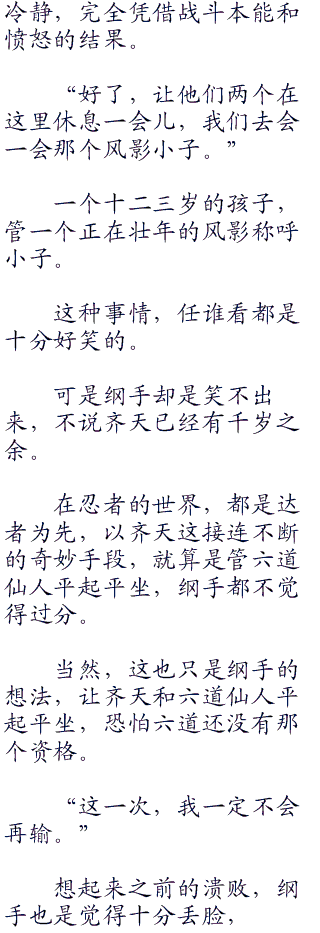 冷静，完全凭借战斗本能和
愤怒的结果。
“好了，让他们两个在
这里休息一会儿，我们去会
一会那个风影小子。”
一个十二三岁的孩子，
管一个正在壮年的风影称呼
小子。
这种事情，任谁看都是
十分好笑的。
可是纲手却是笑不出
来，不说齐天已经有千岁之
余。
在忍者的世界，都是达
者为先，以齐天这接连不断
的奇妙手段，就算是管六道
仙人平起平坐，纲手都不觉
得过分。
当然，这也只是纲手的
想法，让齐天和六道仙人平
起平坐，恐怕六道还没有那
个资格。
“这一次，我一定不会
再输。”
想起来之前的溃败，纲
手也是觉得十分丢脸，